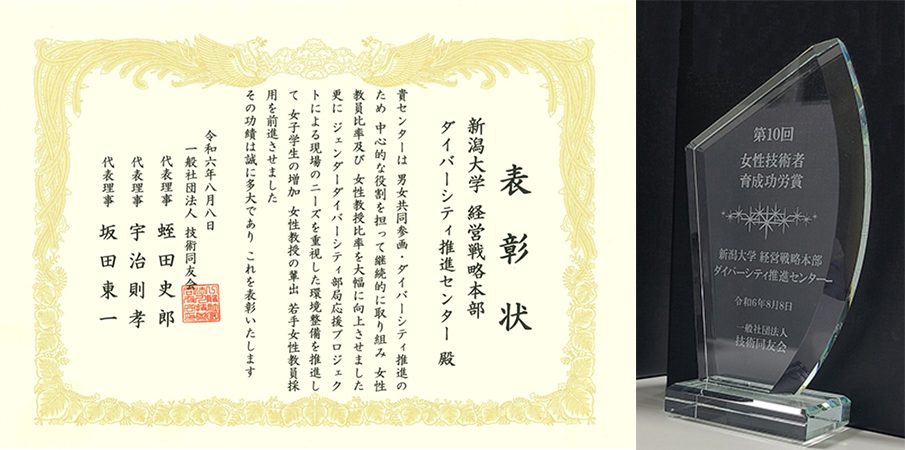 表彰状
新潟大学 経営戦略本部
ダイバーシティ推進センター 殿
貴センターは 男女共同参画・ダイバーシティ推進の
ため 中心的な役割を担って継続的に取り組み 女性
教員比率及び 女性教授比率を大幅に向上させました
更に ジェンダーダイバーシティ部局応援プロジェク
トによる現場のニーズを重視した環境整備を推進し
て 女子学生の増加 女性教授の輩出 若手女性教員採
用を前進させました
その功績は誠に多大であり これを表彰いたします
令和六年八月八日
一般社団法人 技術同友会
代表理事 蛭田史郎
代表理事 宇治則孝
代表理事 坂田東一
第10回
女性技術者
育成功労賞
新潟大学 経営戦略本部
ダイバーシティ推進センター
令和6年8月8日
一般社団法人
技術同友会